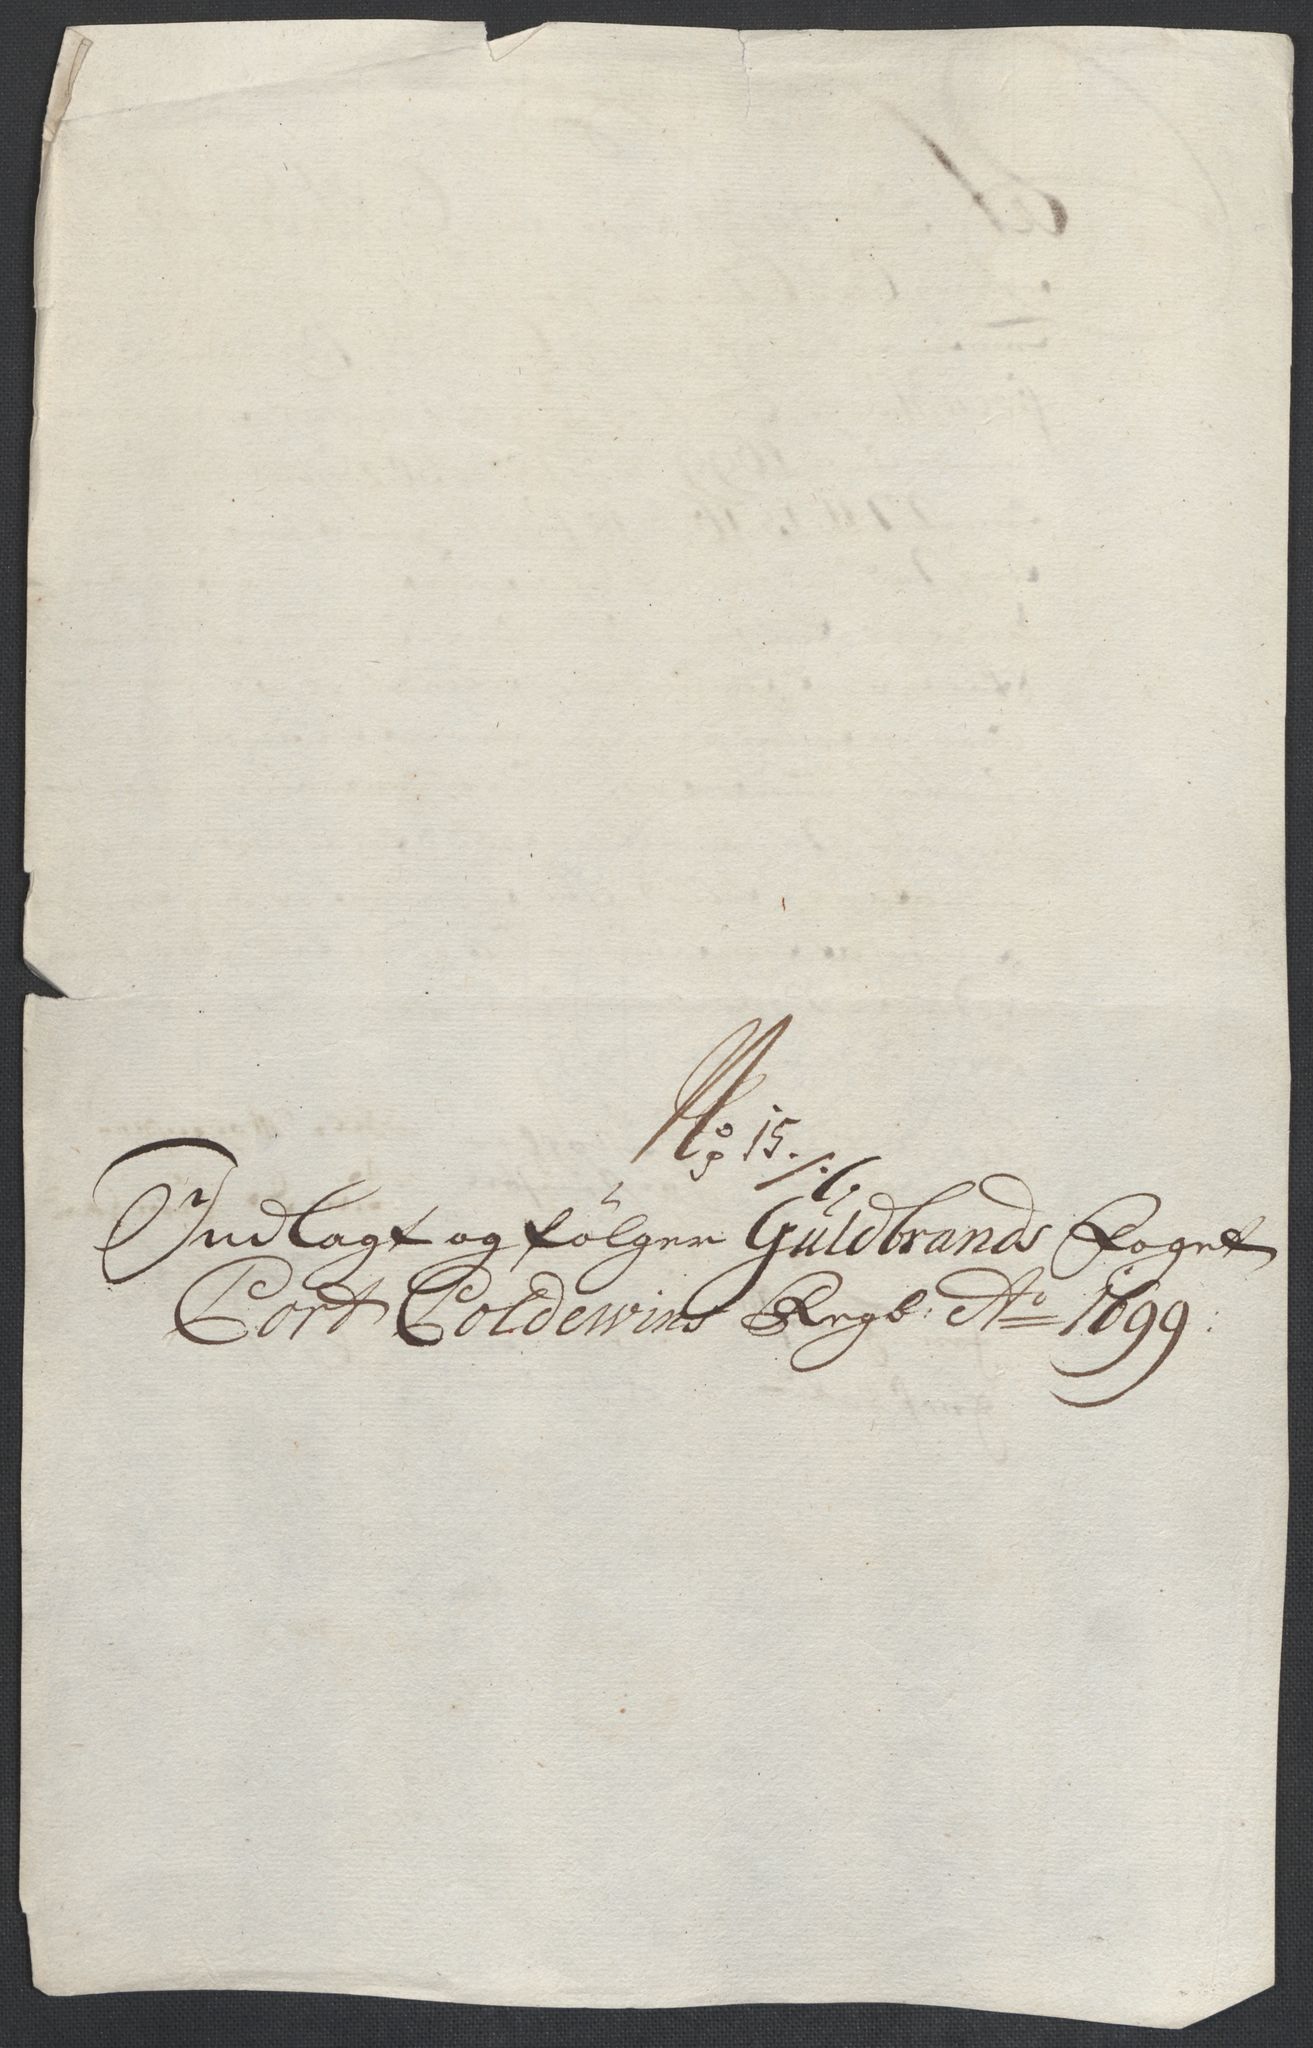 No 15.
/: 6.
Indlagt og følger Guldbrands Foget
Cort Coldewins Regb: Ao 1699.